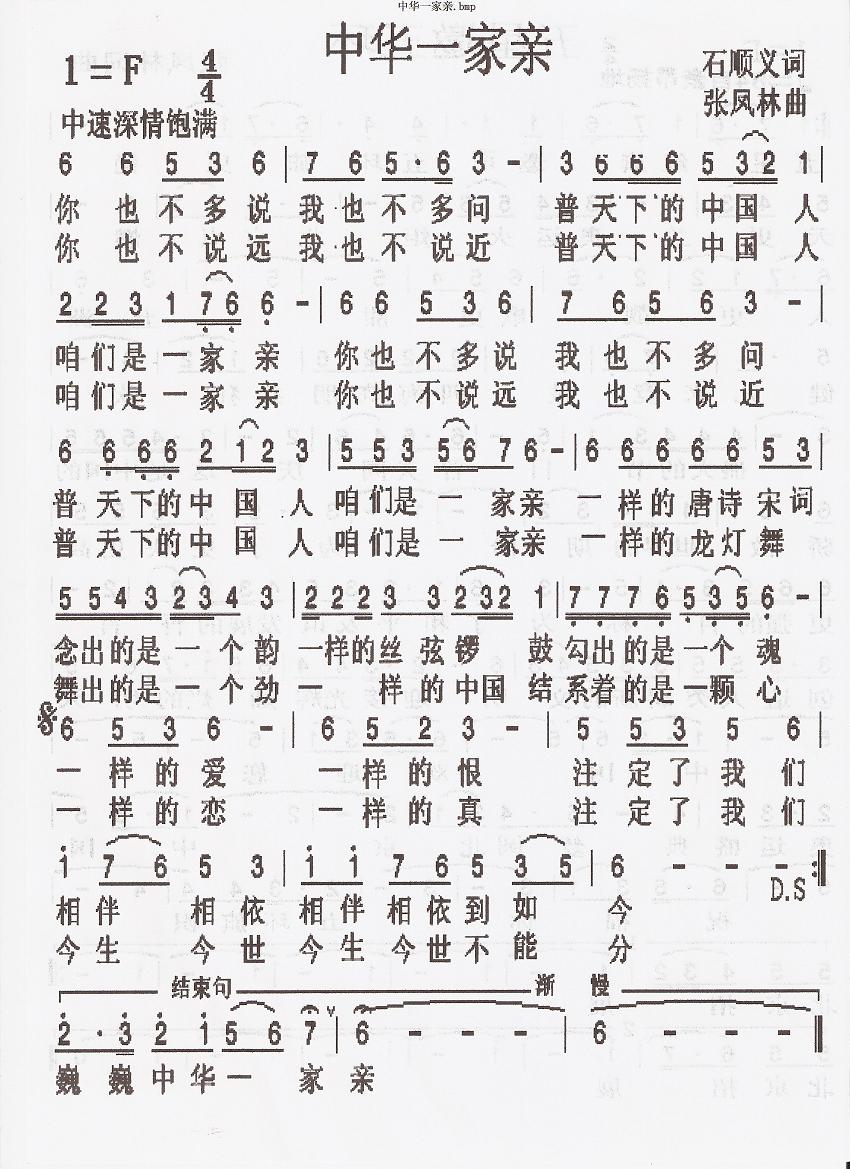 中华一家亲.bmp
中华一家亲
1=F 4/4
石顺义词
张凤林曲
中速深情饱满
6 6 5 3 6 | 7 6 5·6 3 - | 3 6 6 6 5 3 2 1 |
你也不多说我也不多问 普天下的中国人
你也不说远我也不说近 普天下的中国人
2 2 3 1 7 6 6 - | 6 6 5 3 6 | 7 6 5 6 3 - |
咱们是一家亲 你也不多说 我也不多问
咱们是一家亲 你也不说远 我也不说近
6 6 6 6 2 1 2 3 | 5 5 3 5 6 7 6 - | 6 6 6 6 6 5 3 |
普天下的中国人 咱们是一家亲 一样的唐诗宋词
普天下的中国人 咱们是一家亲 一样的龙灯舞
5 5 4 3 2 3 4 3 | 2 2 2 3 3 2 3 2 1 | 7 7 7 6 5 3 5 6 - |
念出的是一个韵 一样的丝弦锣鼓 勾出的是一个魂
舞出的是一个劲 一样的中国结 系着的是一颗心
6 5 3 6 - | 6 5 2 3 - | 5 5 3 5 6 |
一样的爱 一样的恨 注定了我们
一样的恋 一样的真 注定了我们
1 7 6 5 3 | 1 1 7 6 5 3 5 | 6 - - - :‖
D.S
相伴相依相伴相依到如今
今生今世今生今世不能分
结束句 渐慢
2·3 2 1 5 6 7 ∨ | 6 - - - | 6 - - - ‖
巍巍中华一家亲